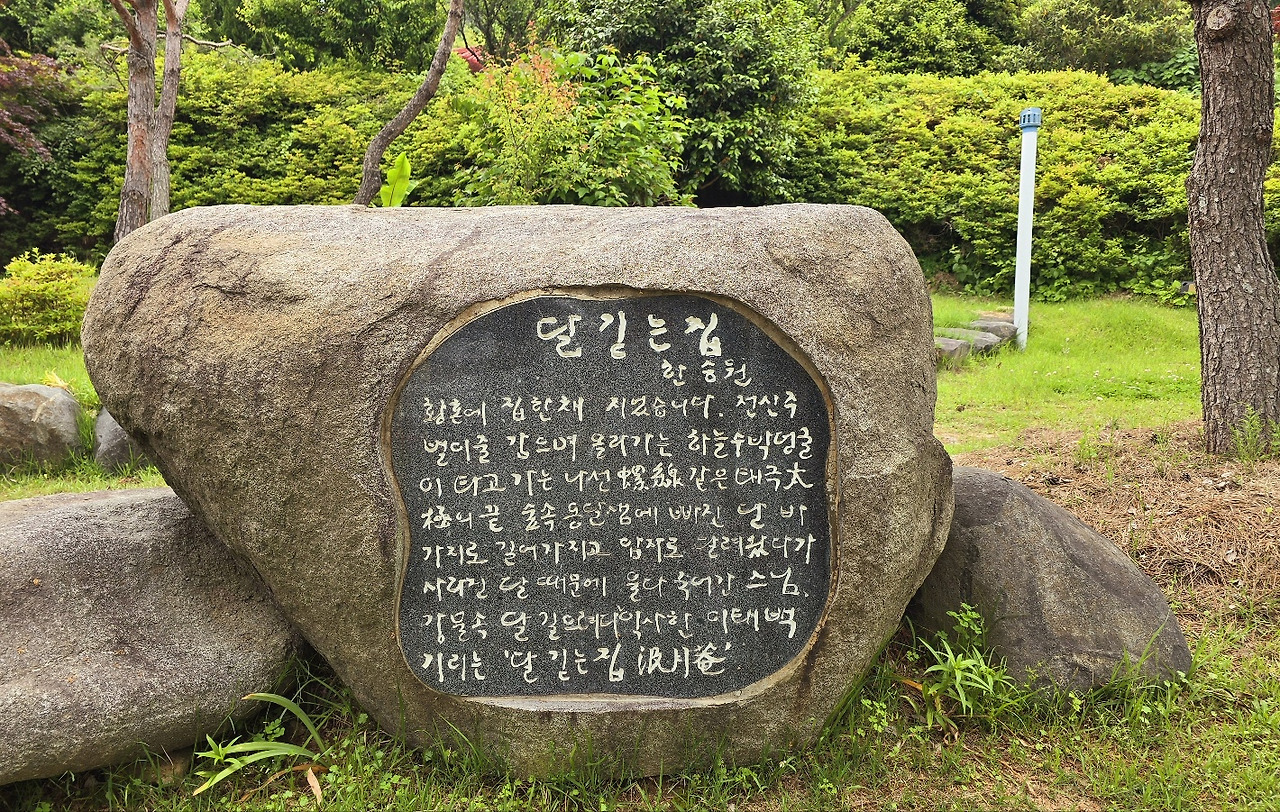 달 긷는 집
한승원
황혼에 집 한 채 지었습니다. 전신주
벌이줄 감으며 올라가는 하늘수박덩굴
이 타고 가는 나선 螺線 같은 태극太
極의 끝 숲속 옹달샘에 빠진 달 바
가지로 길어가지고 암자로 달려왔다가
사라진 달 때문에 울다 죽어간 스님,
강물속 달 길으려다 익사한 이태백
기리는 '달 긷는 집 汲月菴'.